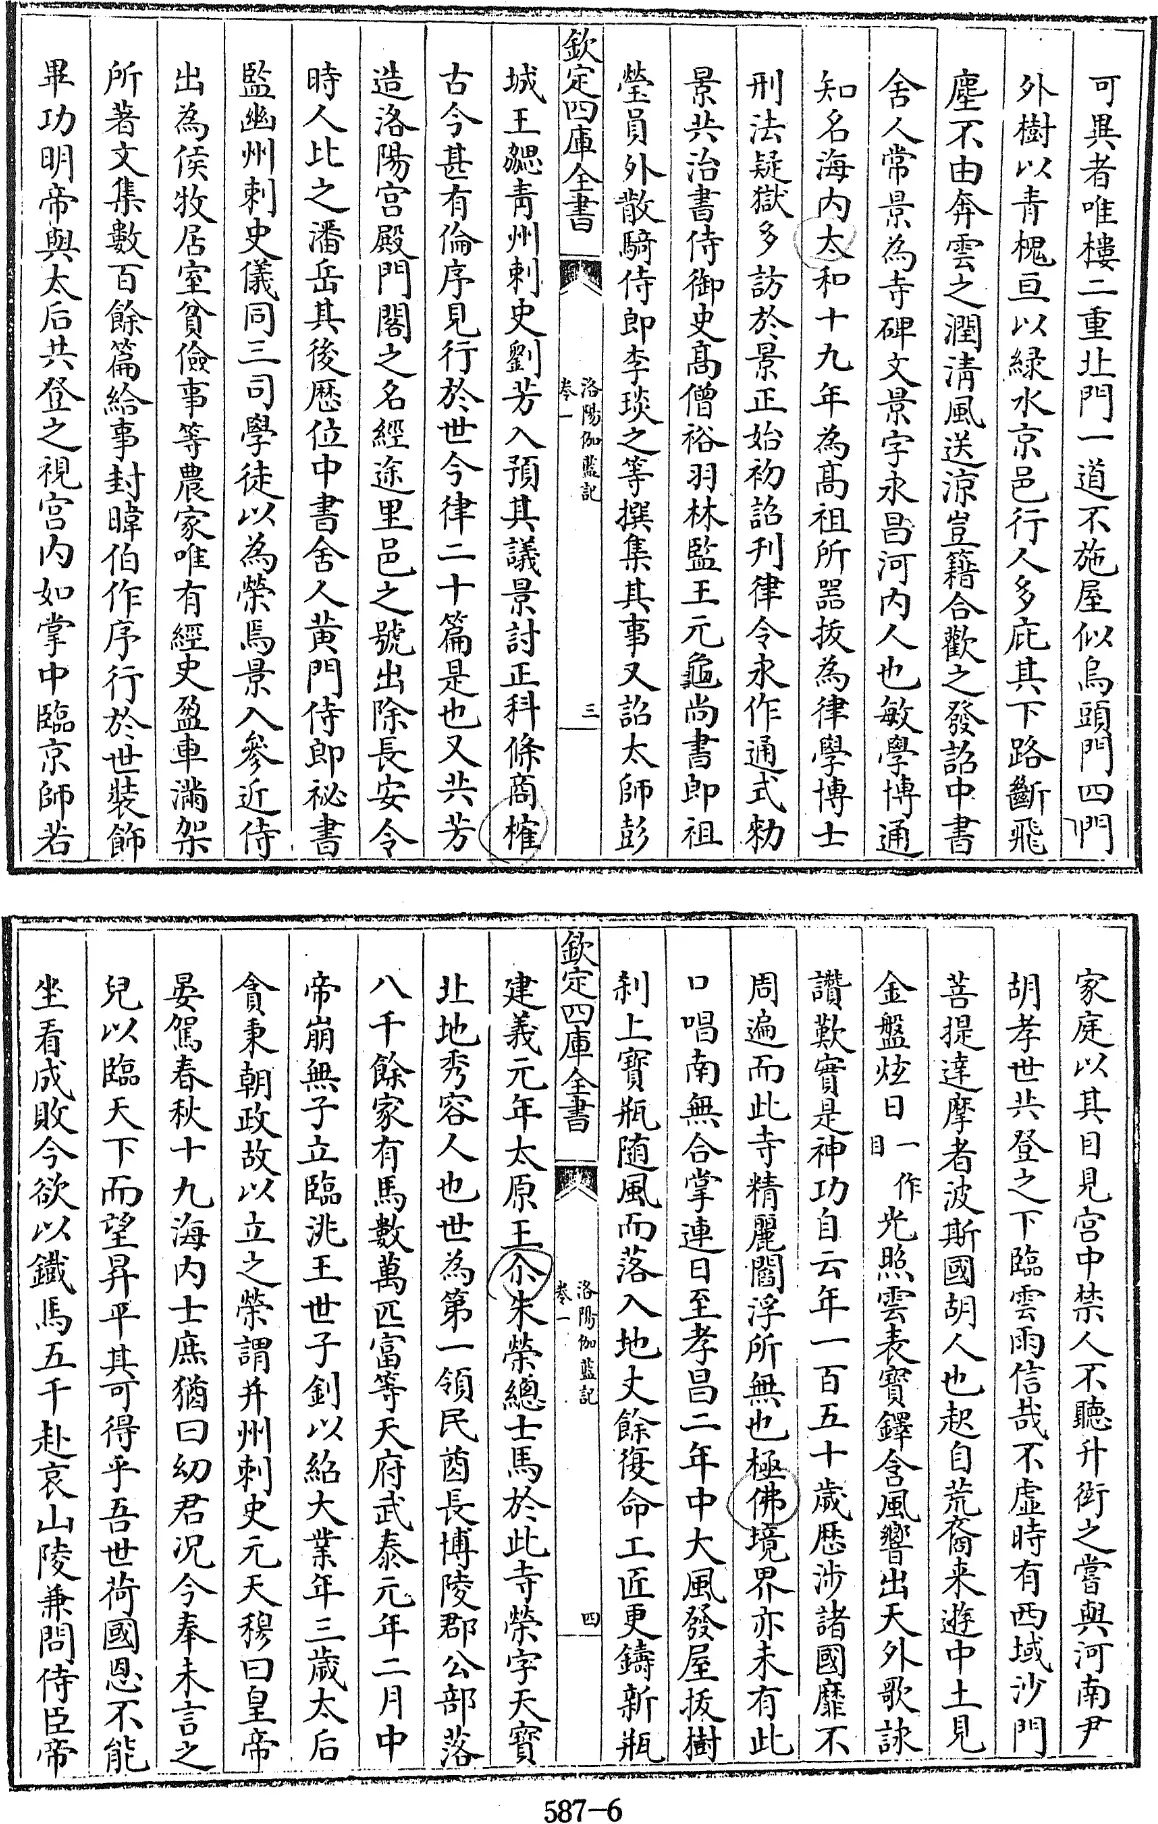 可異者唯樓二重北門一道不施屋似烏頭門四門
外樹以青槐亘以綠水京邑行人多庇其下路斷飛
塵不由奔雲之潤清風送涼豈籍合歡之發詔中書
舍人常景為寺碑文景字永昌河内人也敏學博通
知名海内太和十九年為髙祖所噐拔為律學博士
刑法疑獄多訪於景正始初詔刋律令永作通式勅
景共治書侍御史髙僧裕羽林監王元龜尚書郎祖
瑩員外散騎侍郎李琰之等撰集其事又詔太師彭
欽定四庫全書
洛陽伽藍記
卷一
三
城王勰青州刺史劉芳入預其議景討正科條商榷
古今甚有倫序見行於世今律二十篇是也又共芳
造洛陽宫殿門閣之名經途里邑之號出除長安令
時人比之潘岳其後歴位中書舍人黄門侍郎祕書
監幽州刺史儀同三司學徒以為榮焉景入參近侍
出為侯牧居室貧儉事等農家唯有經史盈車滿架
所著文集數百餘篇給事封暐伯作序行於世裝飾
畢功明帝與太后共登之視宫内如掌中臨京師若
家庭以其目見宫中禁人不聽升衒之嘗與河南尹
胡孝世共登之下臨雲雨信哉不虚時有西域沙門
菩提達摩者波斯國胡人也起自荒裔来遊中土見
金盤炫日一作目光照雲表寳鐸含風響出天外歌詠
讚歎實是神功自云年一百五十歲歴涉諸國靡不
周遍而此寺精麗閻浮所無也極佛境界亦未有此
口唱南無合掌連日至孝昌二年中大風發屋拔樹
刹上寳瓶随風而落入地丈餘復命工匠更鑄新瓶
欽定四庫全書
洛陽伽藍記
卷一
四
建義元年太原王尒朱榮總士馬於此寺榮字天寳
北地秀容人也世為第一領民酋長博陵郡公部落
八千餘家有馬數萬匹富等天府武泰元年二月中
帝崩無子立臨洮王世子釗以紹大業年三歲太后
貪秉朝政故以立之榮謂并州刺史元天穆曰皇帝
晏駕春秋十九海内士庶猶曰幼君况今奉未言之
兒以臨天下而望昇平其可得乎吾世荷國恩不能
坐看成敗今欲以鐵馬五千赴哀山陵兼問侍臣帝
587-6